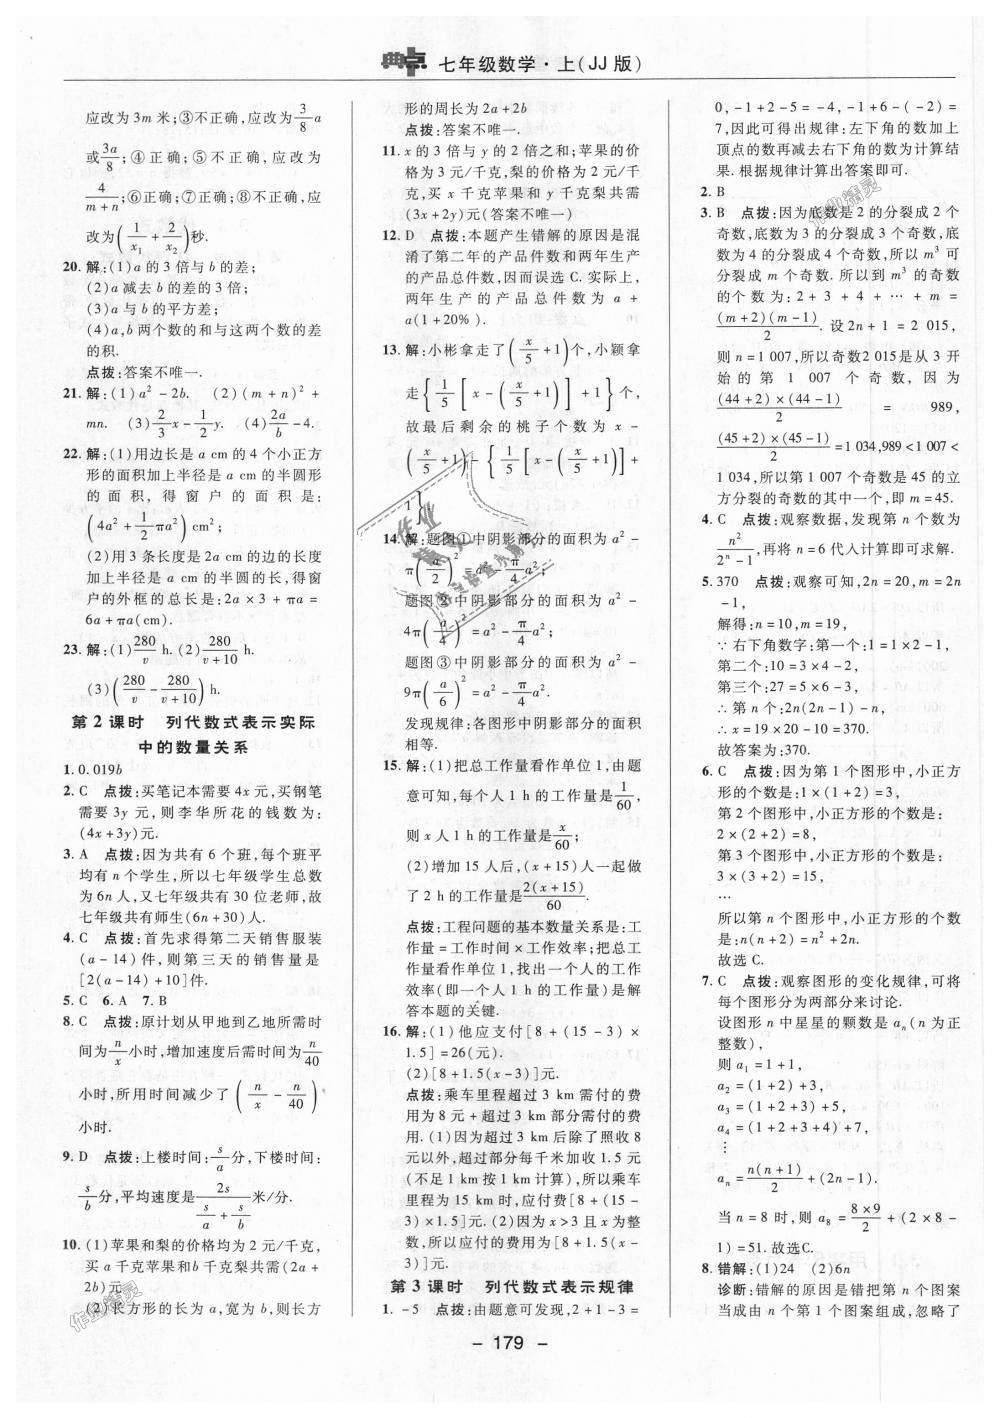 典点 七年级数学·上(JJ版)
应改为3m米;③不正确,应改为3/8 a
或3a/8;④正确;⑤不正确,应改为
4/(m+n);⑥正确;⑦正确;⑧不正确,应
改为(1/x₁+2/x₂)秒.
20.解:(1)a的3倍与b的差;
(2)a减去b的差的3倍;
(3)a与b的平方差;
(4)a,b两个数的和与这两个数的差
的积.
点拨:答案不唯一.
21.解:(1)a²-2b. (2)(m+n)²+
mn. (3)2/3 x-1/2 y. (4)2a/b-4.
22.解:(1)用边长是a cm的4个小正方
形的面积加上半径是a cm的半圆形
的面积,得窗户的面积是:
(4a²+1/2 πa²)cm²;
(2)用3条长度是2a cm的边的长度
加上半径是a cm的半圆的长,得窗
户的外框的总长是:2a×3+πa=
6a+πa(cm).
23.解:(1)280/v h.(2)280/(v+10) h.
(3)(280/v-280/(v+10))h.
第2课时 列代数式表示实际
中的数量关系
1.0.019b
2.C 点拨:买笔记本需要4x元,买钢笔
需要3y元,则李华所花的钱数为:
(4x+3y)元.
3.A 点拨:因为共有6个班,每个班平
均有n个学生,所以七年级学生总数
为6n人,又七年级共有30位老师,故
七年级共有师生(6n+30)人.
4.C 点拨:首先求得第二天销售服装
(a-14)件,则第三天的销售量是
[2(a-14)+10]件.
5.C 6.A 7.B
8.C 点拨:原计划从甲地到乙地所需时
间为n/x小时,增加速度后需时间为n/40
小时,所用时间减少了(n/x-n/40)
小时.
9.D 点拨:上楼时间:s/a分,下楼时间:
s/b分,平均速度是2s/(s/a+s/b)米/分.
10.(1)苹果和梨的价格均为2元/千克,
买a千克苹果和b千克梨共需(2a+
2b)元
(2)长方形的长为a,宽为b,则长方
形的周长为2a+2b
点拨:答案不唯一.
11.x的3倍与y的2倍之和;苹果的价
格为3元/千克,梨的价格为2元/千
克,买x千克苹果和y千克梨共需
(3x+2y)元(答案不唯一)
12.D 点拨:本题产生错解的原因是混
淆了第二年的产品件数与两年生产
的产品总件数,因而误选C.实际上,
两年生产的产品总件数为a+
a(1+20%).
13.解:小彬拿走了(x/5+1)个,小颖拿
走{1/5[x-(x/5+1)]+1}个,
故最后剩余的桃子个数为x-
(x/5+1)-{1/5[x-(x/5+1)]+
1}个.
14.解:题图①中阴影部分的面积为a²-
π(a/2)²=a²-π/4 a²;
题图②中阴影部分的面积为a²-
4π(a/4)²=a²-π/4 a²;
题图③中阴影部分的面积为a²-
9π(a/6)²=a²-π/4 a².
发现规律:各图形中阴影部分的面积
相等.
15.解:(1)把总工作量看作单位1,由题
意可知,每个人1 h的工作量是1/60,
则x人1 h的工作量是x/60;
(2)增加15人后,(x+15)人一起做
了2 h的工作量是2(x+15)/60.
点拨:工程问题的基本数量关系是:工
作量=工作时间×工作效率;把总工
作量看作单位1,找出一个人的工作
效率(即一个人1 h的工作量)是解
答本题的关键.
16.解:(1)他应支付[8+(15-3)×
1.5]=26(元).
(2)[8+1.5(x-3)]元.
点拨:乘车里程超过3 km需付的费
用为8元+超过3 km部分需付的费
用.(1)因为超过3 km后除了照收8
元以外,超过部分每千米加收1.5元
(不足1 km按1 km计算),所以乘车
里程为15 km时,应付费[8+(15-
3)×1.5]元.(2)因为x>3且x为整
数,所以应付的费用为[8+1.5(x-
3)]元.
第3课时 列代数式表示规律
1.-5 点拨:由题意可发现,2+1-3=
0,-1+2-5=-4,-1+6-(-2)=
7,因此可得出规律:左下角的数加上
顶点的数再减去右下角的数为计算结
果.根据规律计算出答案即可.
2.B
3.B 点拨:因为底数是2的分裂成2个
奇数,底数为3的分裂成3个奇数,底
数为4的分裂成4个奇数,所以m³可
分裂成m个奇数.所以到m³的奇数
的个数为:2+3+4+…+m=
(m+2)(m-1)/2.设2n+1=2 015,
则n=1 007,所以奇数2 015是从3开
始的第1 007个奇数,因为
(44+2)×(44-1)/2=989,
(45+2)×(45-1)/2=1 034,989<1 007<
1 034,所以第1 007个奇数是45的立
方分裂的奇数的其中一个,即m=45.
4.C 点拨:观察数据,发现第n个数为
n²/(2ⁿ-1),再将n=6代入计算即可求解.
5.370 点拨:观察可知,2n=20,m=2n
-1,
解得:n=10,m=19,
∵右下角数字:第一个:1=1×2-1,
第二个:10=3×4-2,
第三个:27=5×6-3,
∴第n个:2n(2n-1)-n,
∴x=19×20-10=370.
故答案为:370.
6.C 点拨:因为第1个图形中,小正方
形的个数是:1×(1+2)=3,
第2个图形中,小正方形的个数是:
2×(2+2)=8,
第3个图形中,小正方形的个数是:
3×(3+2)=15,
…
所以第n个图形中,小正方形的个数
是:n(n+2)=n²+2n.
故选C.
7.C 点拨:观察图形的变化规律,可将
每个图形分为两部分来讨论.
设图形n中星星的颗数是aₙ(n为正
整数),
则a₁=1+1,
a₂=(1+2)+3,
a₃=(1+2+3)+5,
a₄=(1+2+3+4)+7,
…
aₙ=n(n+1)/2+(2n-1).
当n=8时,则a₈=8×9/2+(2×8-
1)=51.故选C.
8.错解:(1)24 (2)6n
诊断:错解的原因是错把第n个图案
当成由n个第1个图案组成,忽略了
- 179 -